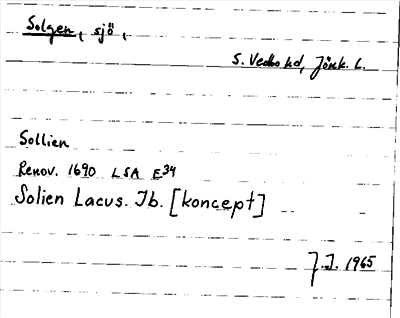 Solgen, sjö,
S. Vedbo hd, Jönk. L.
Sollien
Renov. 1690 LSA E34
Solien Lacus. Ib. [koncept]
J.J. 1965